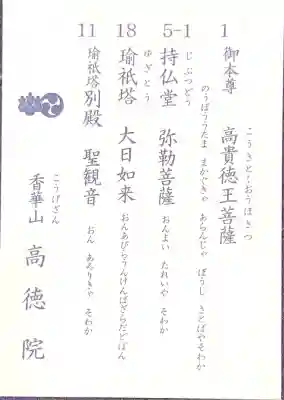 1 御本尊 高貴徳王菩薩
こうきとくおうぼさつ
のうぼうりうたま まかてきや あらんじゃ ぼうし さとばやそわか
5-1 持仏堂 弥勒菩薩
じぶつどう
おんよい たれいや そわか
18 瑜祇塔 大日如来
ゆぎとう
おんあびらうんけんばざらだどばん
11 瑜祇塔別殿 聖観音
おん あろりきゃ そわか
こうげざん
香華山 高徳院